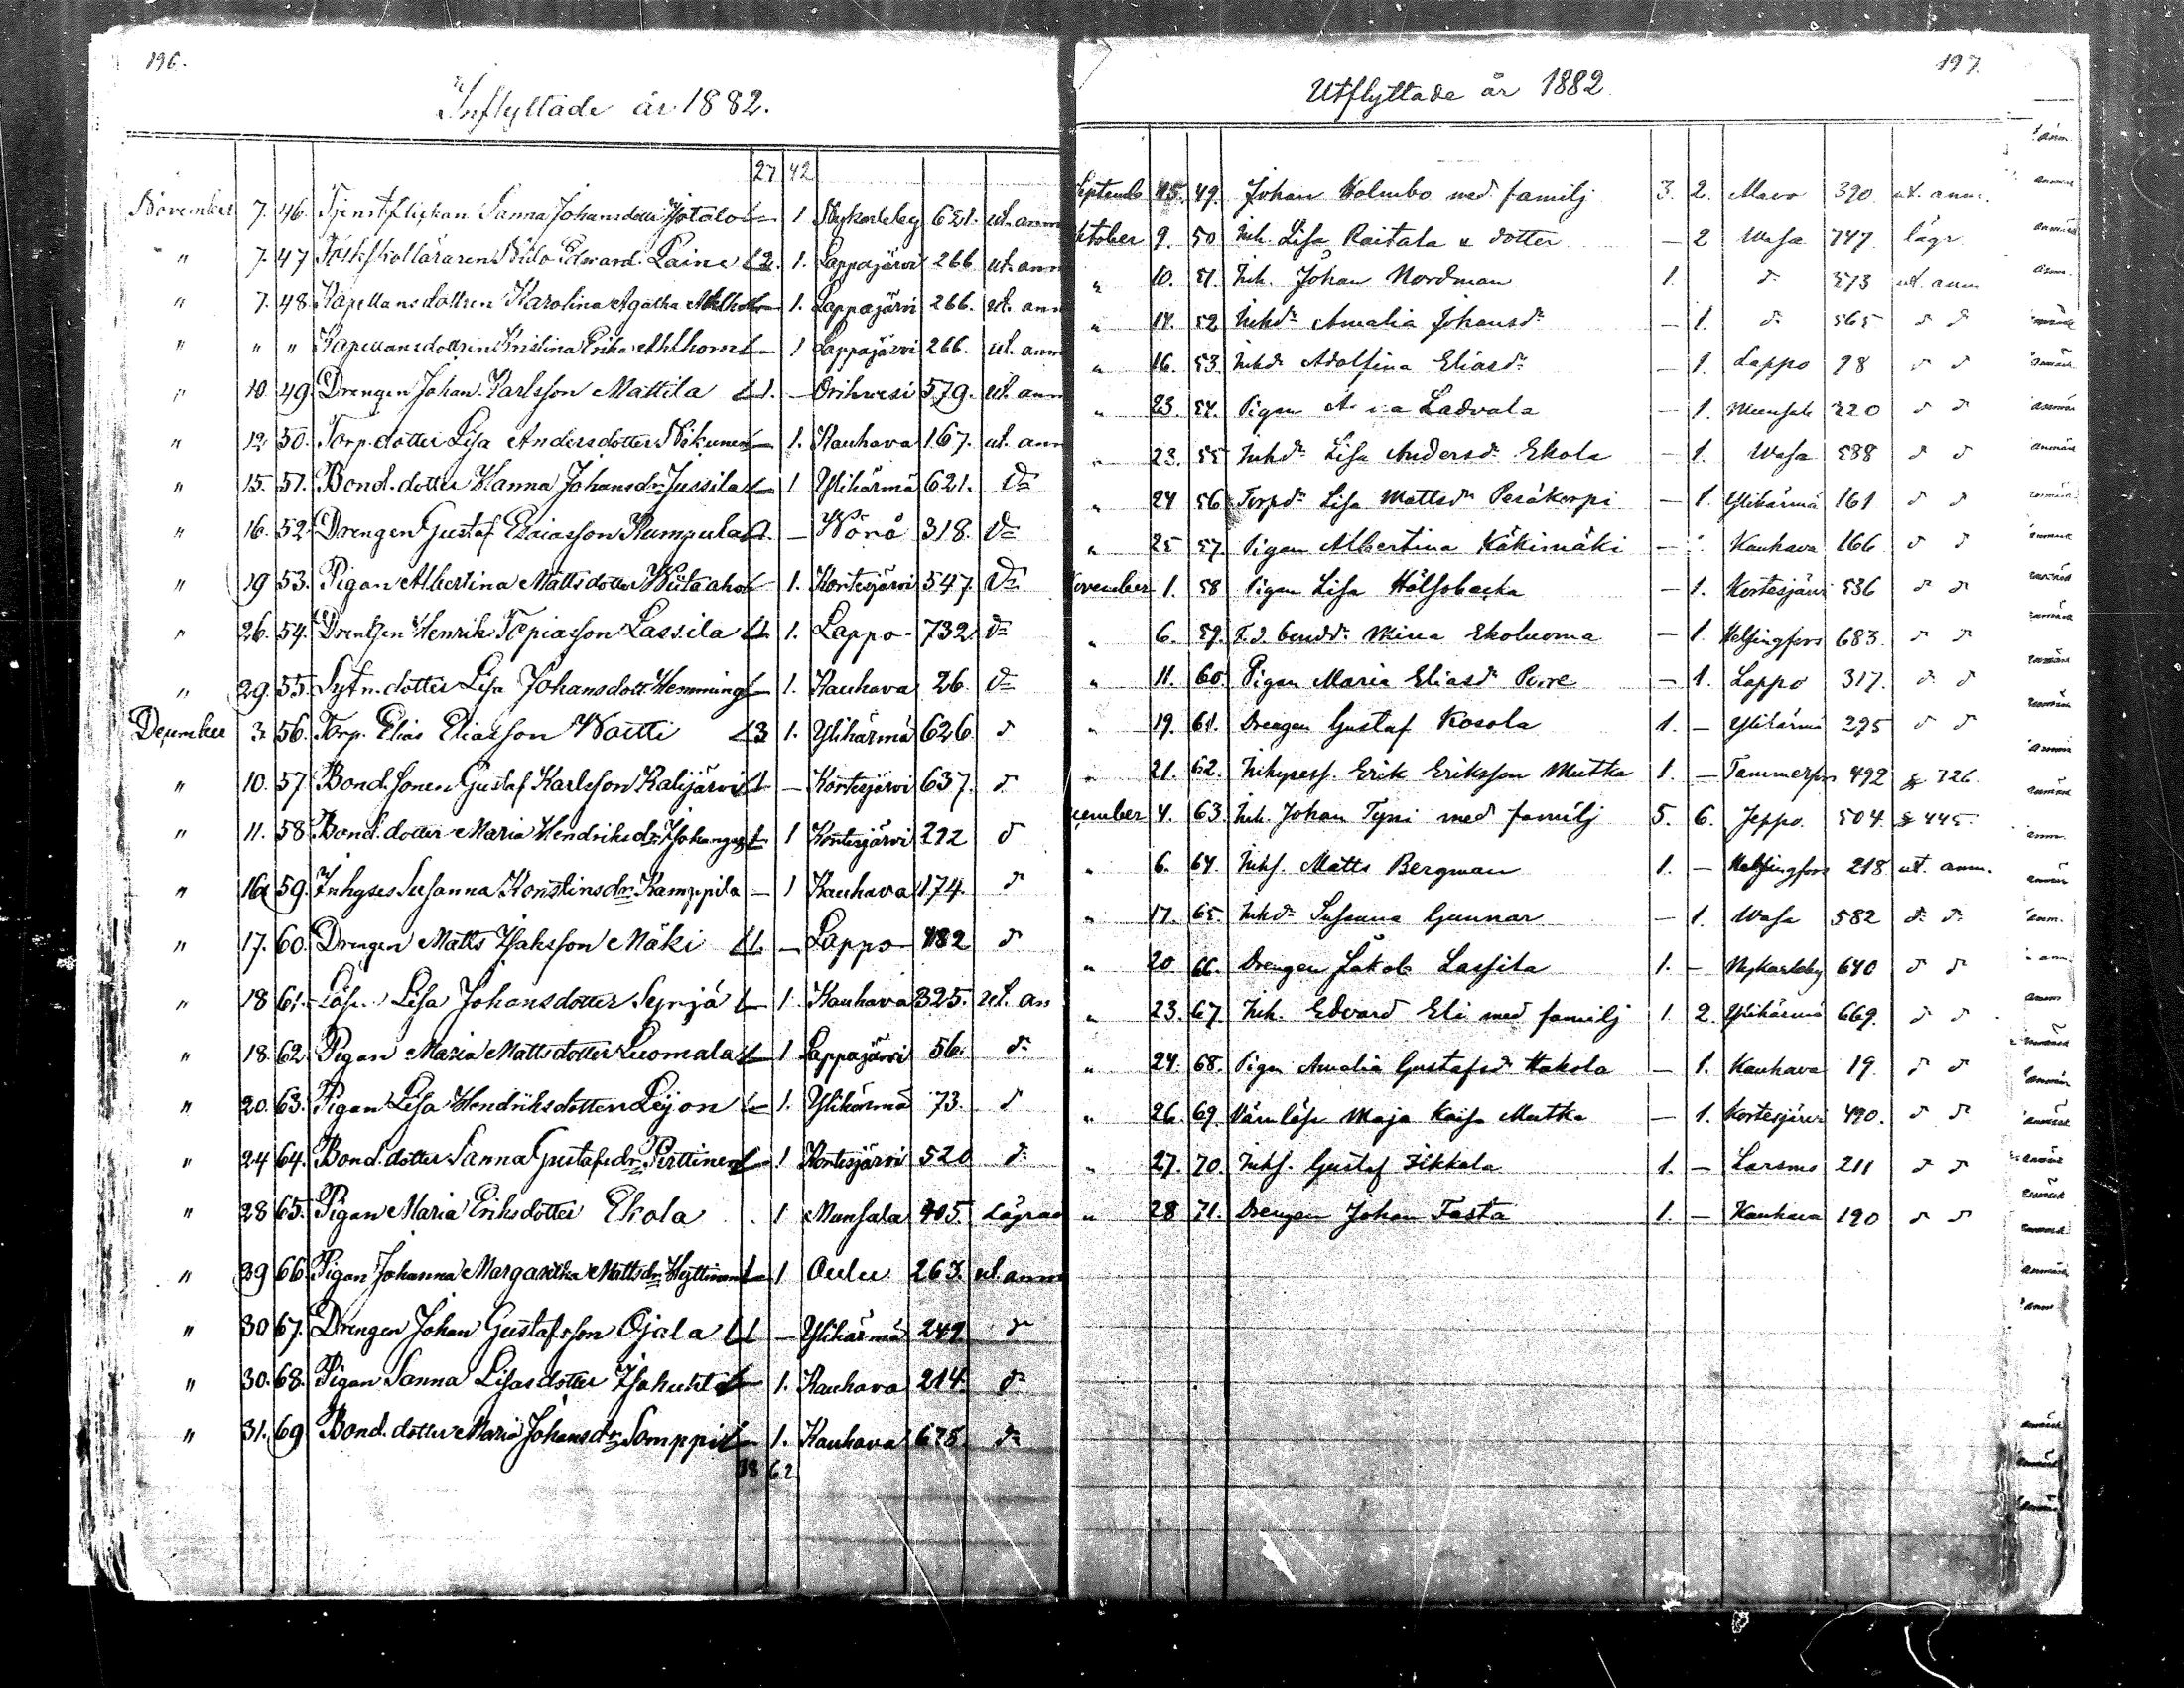 196.
Inflyttade år 1882.
27 42
November 7. 46. Tjenstflickan Sanna Johansdotter 1 Nykarleby 621. ut. anm
" 7. 47 Folkskolläraren Edward Laine 2. 1. Lappajärvi 266 ut. anm
" 7. 48. Kapellansdottren Karolina Agatha — 1. Lappajärvi 266. ut. anm
" " " Kapellansdottren Kristina Erika Ahlholm — 1 Lappajärvi 266. ut. anm
" 10. 49. Drengen Johan Karlsson Mattila 1. — Orihvesi 579. ut. anm
" 12. 50. Torp. dotter Lisa Andersdotter — 1. Kauhava 167. ut. anm
" 15. 51. Bond. dotter Hanna Johansdr Jussila — 1 Ylihärmä 621. do
" 16. 52. Drengen Gustaf Rumpula 1. — Wörå 318. do
" 19 53. Pigan Albertina Mattsdotter Wiitaaho — 1. Kortesjärvi 547. do
" 26. 54. Drengen Henrik Topiasson Lassila 1. 1. Lappo 732. do
" 29. 55. Sytn. dotter Lisa Johansdott. Hemming — 1. Kauhava 26. do
December 3. 56. Torp. Elias Eliasson Waitti 3 1. Ylihärmä 626. do
" 10. 57 Bond. sonen Gustaf Karlsson Kalijärvi 1. — Kortesjärvi 637. do
" 11. 58. Bond. dotter Maria Hendriksdr — 1 Kortesjärvi 292 do
" 16 59. Inhyses Susanna Konstinsdr Kamppila — 1 Kauhava 174. do
" 17. 60. Drengen Matts Isaksson Mäki 1. — Lappo 182 do
" 18 61. Lösp. Lisa Johansdotter Syrjä — 1 Kauhava 325. ut. an
" 18. 62. Pigan Maria Mattsdotter Luomala — 1 Lappajärvi 56. do
" 20. 63. Pigan Lisa Hendriksdotter Lejon — 1. Ylihärmä 73. do
" 24 64. Bond. dotter Sanna Gustafsdr Perttinen — 1 Kortesjärvi 520 do
" 28 65. Pigan Maria Eriksdotter Ekola . 1 Munsala 405. Lägrad
" 29 66. Pigan Johanna Margaretha Mattsdr Hyttinen — 1 Oulu 263. ut. anm
" 30 67. Drengen Johan Gustafsson Ojala 1 — Ylihärmä 249 do
" 30. 68. Pigan Sanna Lisasdotter — 1. Kauhava 214. do
" 31. 69 Bond. dotter Maria Johansdr Somppi — 1. Kauhava 678. do
38 62
197.
Utflyttade år 1882
Septemb 15. 49. Johan Holmbo med familj 3. 2. 390 ut. anm.
ktober 9. 50 Inh. Lisa Raitala & dotter — 2 Wasa 747 lägr
" 10. 51. Inh. Johan Nordman 1. do 573 ut. anm
" 14. 52 Inhdr Amalia Johansdr — 1. do 565 do do
" 16. 53. Inhdr Adolfina Eliasdr — 1. Lappo 98 do do
" 23. 54. Pigan Ladvala — 1. Munsala 320 do do
" 23. 55 Inhdr Lisa Andersdr Ekola — 1. Wasa 588 do do
" 24 56 Torpdr Lisa Mattsdr Peräkorpi — 1. Ylihärmä 161 do do
" 25 57. Pigan Albertina Käkimäki — Kauhava 166 do do
ovember 1. 58 Pigan Lisa — 1. Kortesjärvi 536 do do
" 6. 59. F.d. bonddr Mina Ekoluoma — 1. Helsingfors 683. do do
" 11. 60. Pigan Maria Eliasdr — 1. Lappo 317. do do
" 19. 61. Drengen Gustaf Kosola 1. — Ylihärmä 295 do do
" 21. 62. Inhyress. Erik Eriksson Mutka 1. — Tammerfors 492 § 726.
cember 4. 63. Inh. Johan Tyni med familj 5. 6. Jeppo. 504. § 445.
" 6. 64 Inhs. Matts Bergman 1. — Helsingfors 218 ut. anm.
" 17. 65. Inhdr Susanna Gunnar — 1. Wasa 582 do do
" 20 66. Drengen Jakob Lassila 1. — Nykarleby 640 do do
" 23. 67. Inh. Edvard Eli med familj 1. 2. Ylihärmä 669. do do
" 24. 68. Pigan Amalia Gustafsdr Hakola — 1. Kauhava 19. do do
" 26. 69. Maja Kaisa Mutka — 1. Kortesjärvi 490. do do
" 27. 70. Inhs. Gustaf Ilkkala 1. — Larsmo 211 do do
" 28 71. Drengen Johan Tasta 1. — Kauhava 190 do do